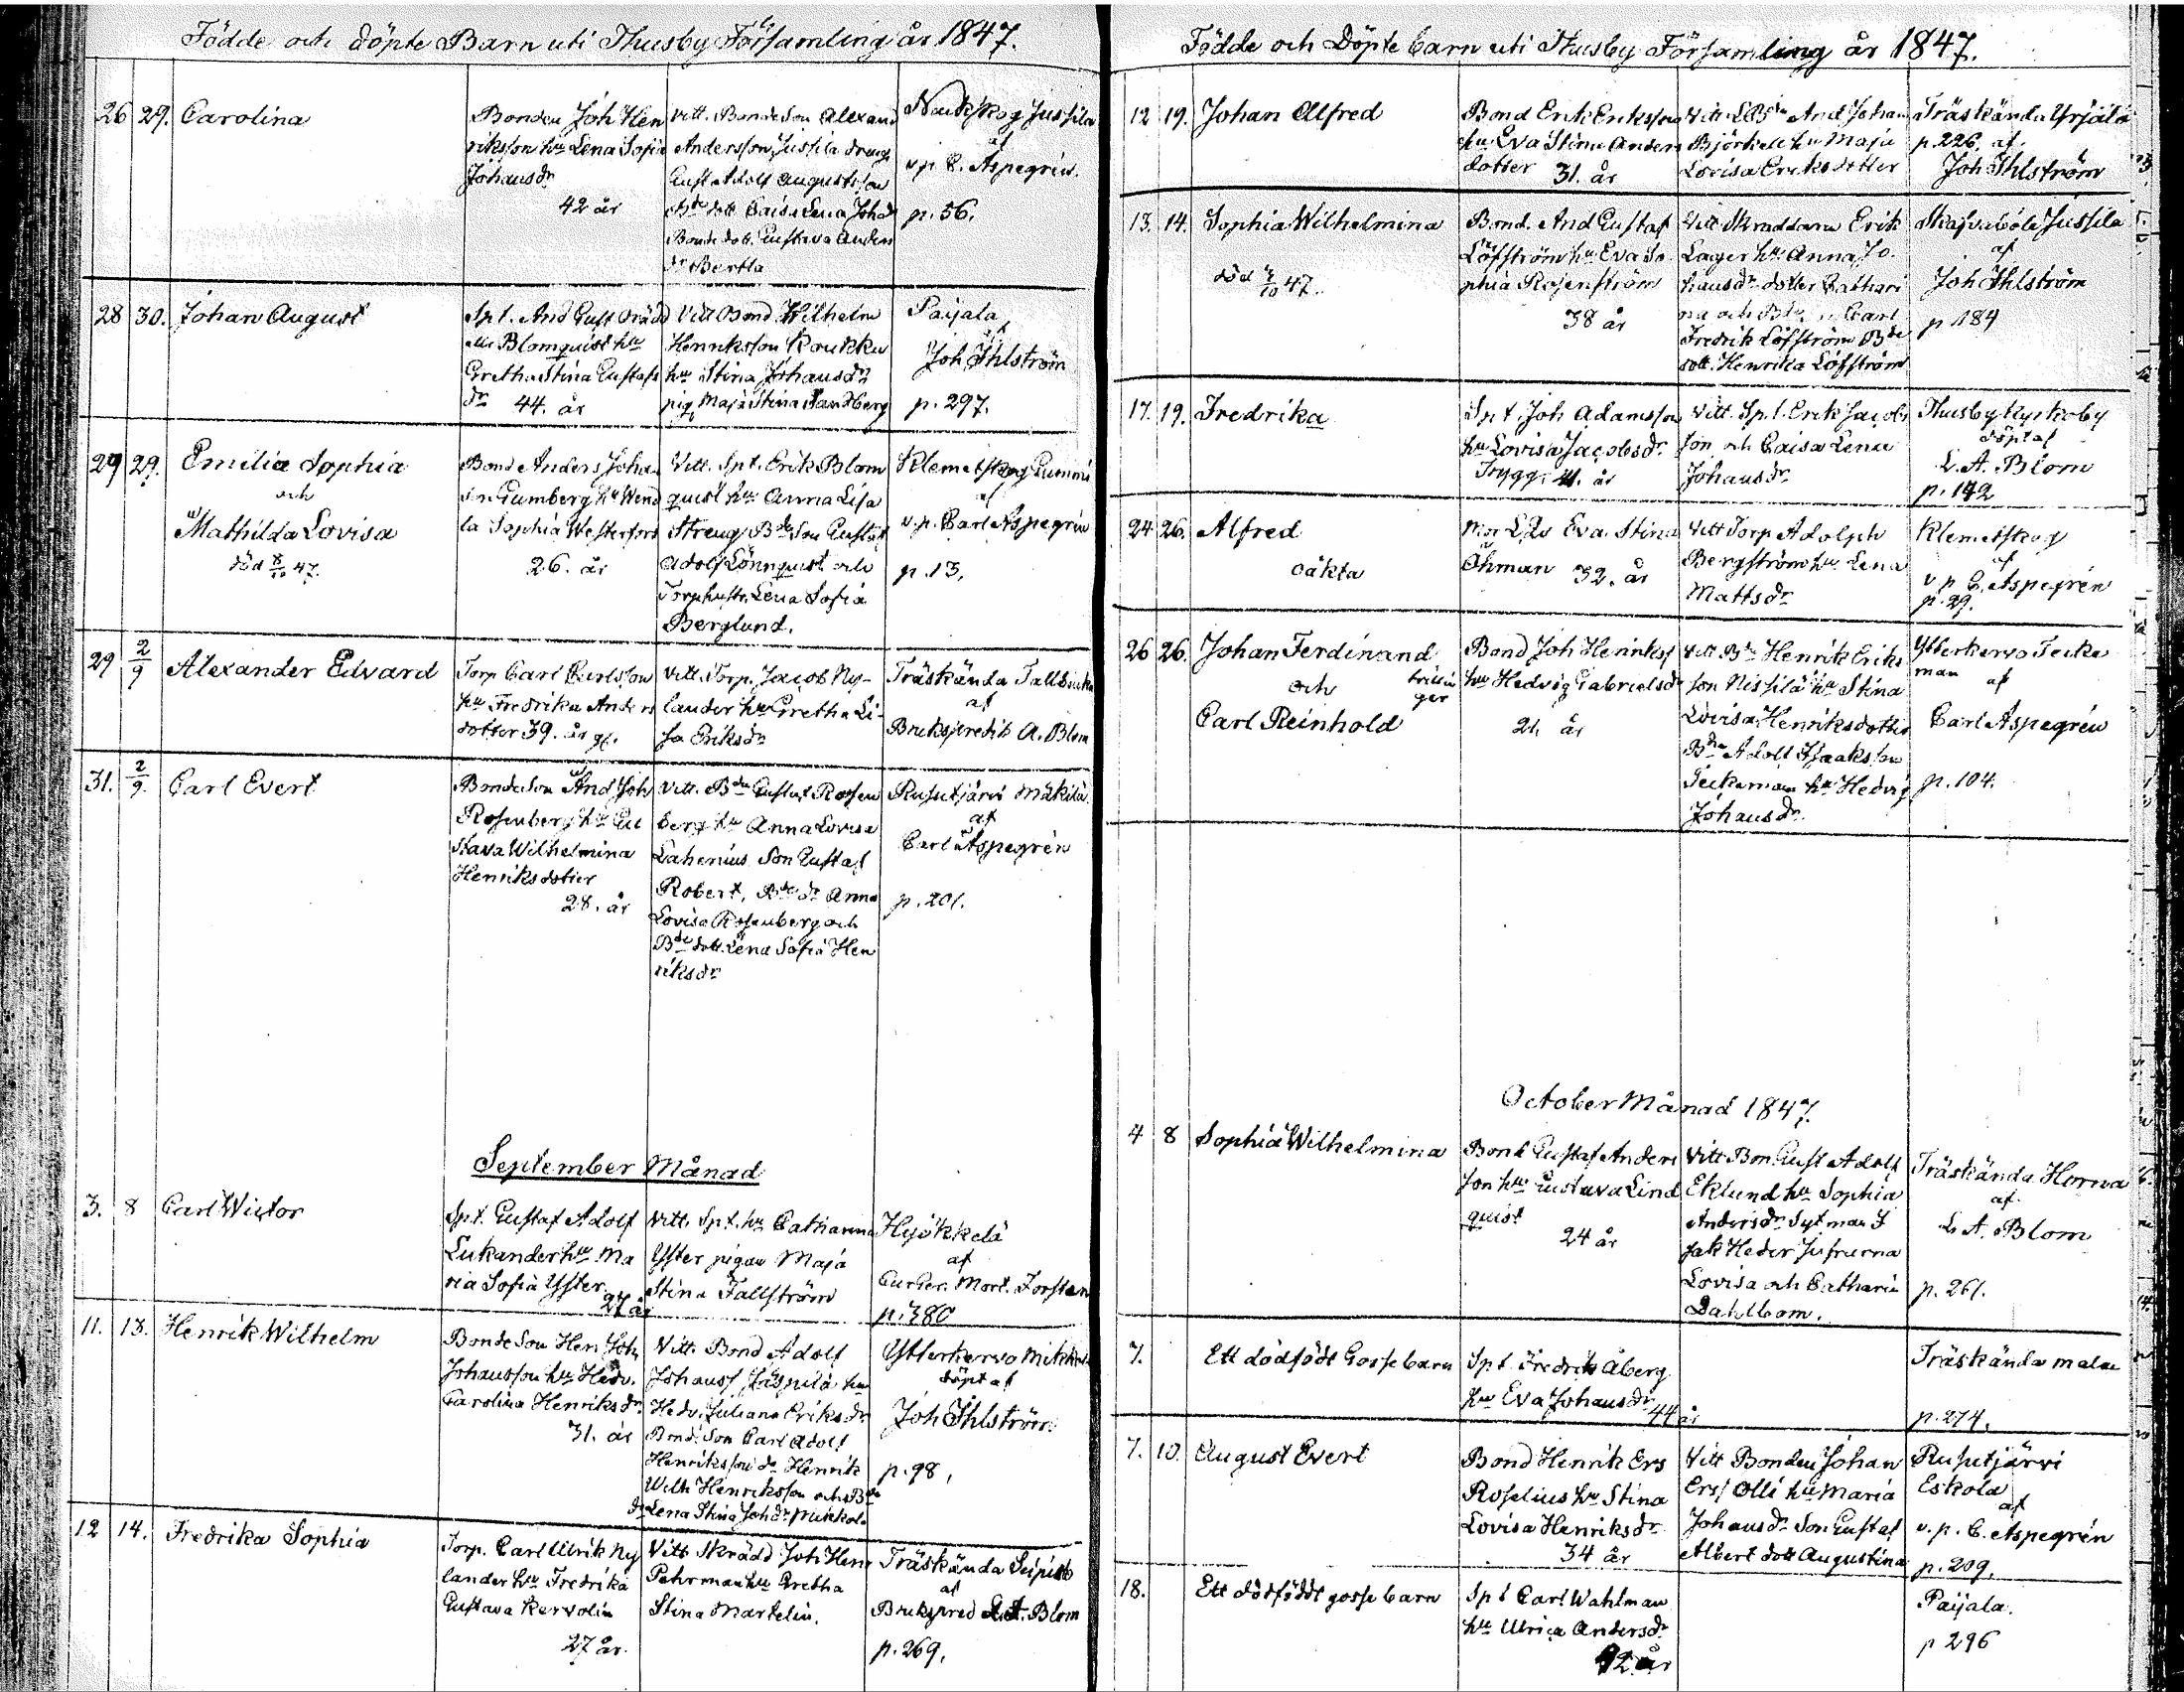 Födde och döpte Barn uti Thusby Församling år 1847.
26 29. Carolina
Bonden Joh Hen
riksson hu Lena Sofia
Johansdr
42 år
Vitt. Bondeson Alexand
Andersson Jussila dreng
Gust Adolf Augustsson
Bde dott Caisa Lena Johdr
Bonde dot. Gustava Anders
dr Bertla
Nackskog Jussila
af
v.p. C. Aspegrén.
p. 56.
28 30. Johan August
Spt. And Gust
Blomquist hu
Gretha Stina Gustafs
dr 44. år
Vitt Bond Wilhelm
Henriksson Koukku
hu Stina Johansdr
pig. Maja Stina Sandberg
Paijala
af
Joh Ihlström
p. 297.
29 29. Emilia Sophia
och
Mathilda Lovisa
död 8/10 47.
Bond Anders Johan
son Gumberg hu Wend
la Sophia Westerfors
26. år
Vitt. Spt. Erik Blom
quist hu Anna Lisa
Streng Bde Son Gustaf
Adolf Lönnquist och
Torphustr. Lena Sofia
Berglund.
Klemetskog Gummi
af
v.p. Carl Aspegrén
p. 13.
29 2/9 Alexander Edvard
Torp Carl Carlsson
hu Fredrika Anders
dotter 39. år gl.
Vitt. Torp. Jacob Ny-
lander hu Gretha Li-
sa Eriksdr
Träskända Tallbacka
af
Brukspredik A. Blom
31. 2/9. Carl Evert
Bondeson And Joh
Rosenberg hu Gu
stava Wilhelmina
Henriksdotter
28. år
Vitt. Bdn Gustaf Rosen
berg hu Anna Lovisa
Lahenius Son Gustaf
Robert, Bde dr Anna
Lovisa Rosenberg och
Bde dott. Lena Sofia Hen
riksdr
Rusutjärvi Mäkilä
af
Carl Aspegrén
p. 201.
September Månad
3. 8 Carl Wictor
Spt. Gustaf Adolf
Lukander hu Ma
ria Sofia Yster
27 år
Vitt. Spt. hu Catharina
Yster pigan Maja
Stina Fallström
Hyökkelä
af
Mort. Forsten
p. 380
11. 13. Henrik Wilhelm
Bondeson Hen Joh
Johansson hu Hedv.
Carolina Henriksdr.
31. år
Vitt. Bond Adolf
Johanss Jäspilä hu
Hedv. Juliana Eriksdr
Bond. Son Carl Adolf
Henriksson do Henrik
Wilh Henriksson och Bde
dr Lena Stina Joh dr
Ytterkervo Mikkola
döpt af
Joh Ihlström
p. 98.
12 14. Fredrika Sophia
Torp. Carl Ulrik Ny
lander hu Fredrika
Gustava Kervolin
27 år.
Vitt Skrädd Joh Hen
Pehrman hu Gretha
Stina Martelin.
Träskända Seipilä
af
Brukspred L. A. Blom
p. 269.
Födde och Döpte barn uti Thusby Församling år 1847.
12 19. Johan Alfred
Bond Erik Eriksson
hu Eva Stina Anders
dotter 31. år
Vitt And Johan
Björkell hu Maja
Lovisa Eriksdotter
Träskända Yrjälä
p. 226. af.
Joh Ihlström
13. 14. Sophia Wilhelmina
död 4/10 47.
Bond. And Gustaf
Löfström hu Eva So
phia Rosenström
38 år
Vitt Skraddaren Erik
Lager hu Anna Jo
hansdr dotter Cathari
na och Carl
Fredrik Löfström Bde
dott. Henrika Löfström
Skafvaböle Jussila
af
Joh Ihlström
p 184
17. 19. Fredrika
Spt. Joh Adamsson
hu Lovisa Jacobsdr.
Trygg. 41. år
Vitt. Spt. Erik Jacobs
son och Caisa Lena
Johansdr.
Thusby Kyrkoby
döpt af
L. A. Blom
p. 142
24 26. Alfred
oäkta
Eva Stina
Öhman 32. år
Vitt Torp Adolph
Bergström hu Lena
Mattsdr
Klemetskog
af
v. p C. Aspegrén
p. 29.
26 26. Johan Ferdinand
och tvillin
ger
Carl Reinhold
Bond Joh Henrikss
hu Hedvig Gabrielsdr
21 år
Vitt Bdn Henrik Eriks
son Nissilä hu Stina
Lovisa Henriksdotter
Bdn Adolf Isaaksson
Teckeman hu Hedvig
Johansdr.
Ytterkervo Tecke
man af
Carl Aspegrén
p. 104.
October Månad 1847.
4 8 Sophia Wilhelmina
Bond Gustaf Anders
son hu Gustava Lind
quist
24 år
Vitt Bon. Gust Adolf
Eklund hu Sophia
Andersdr Sytman I
sak Heder Jufrurna
Lovisa och Catharin
Dahlbom.
Träskända Horna
af
L. A. Blom
p. 261.
7. Ett dödfödt Gossebarn
Spt Fredrik Åberg
hu Eva Johansdr
44 år
Träskända malm
p. 274.
7. 10. August Evert
Bond Henrik Ers
Roselius hu Stina
Lovisa Henriksdr
34 år
Vitt Bonden Johan
Erss Olli hu Maria
Johansdr Son Gustaf
Albert dott Augustina
Rusutjärvi
Eskola
af
v. p. C. Aspegrén
p. 209.
18. Ett dödfödt gossebarn
Spt Carl Wahlman
hu Ulrica Andersdr
år
Paijala.
p 296